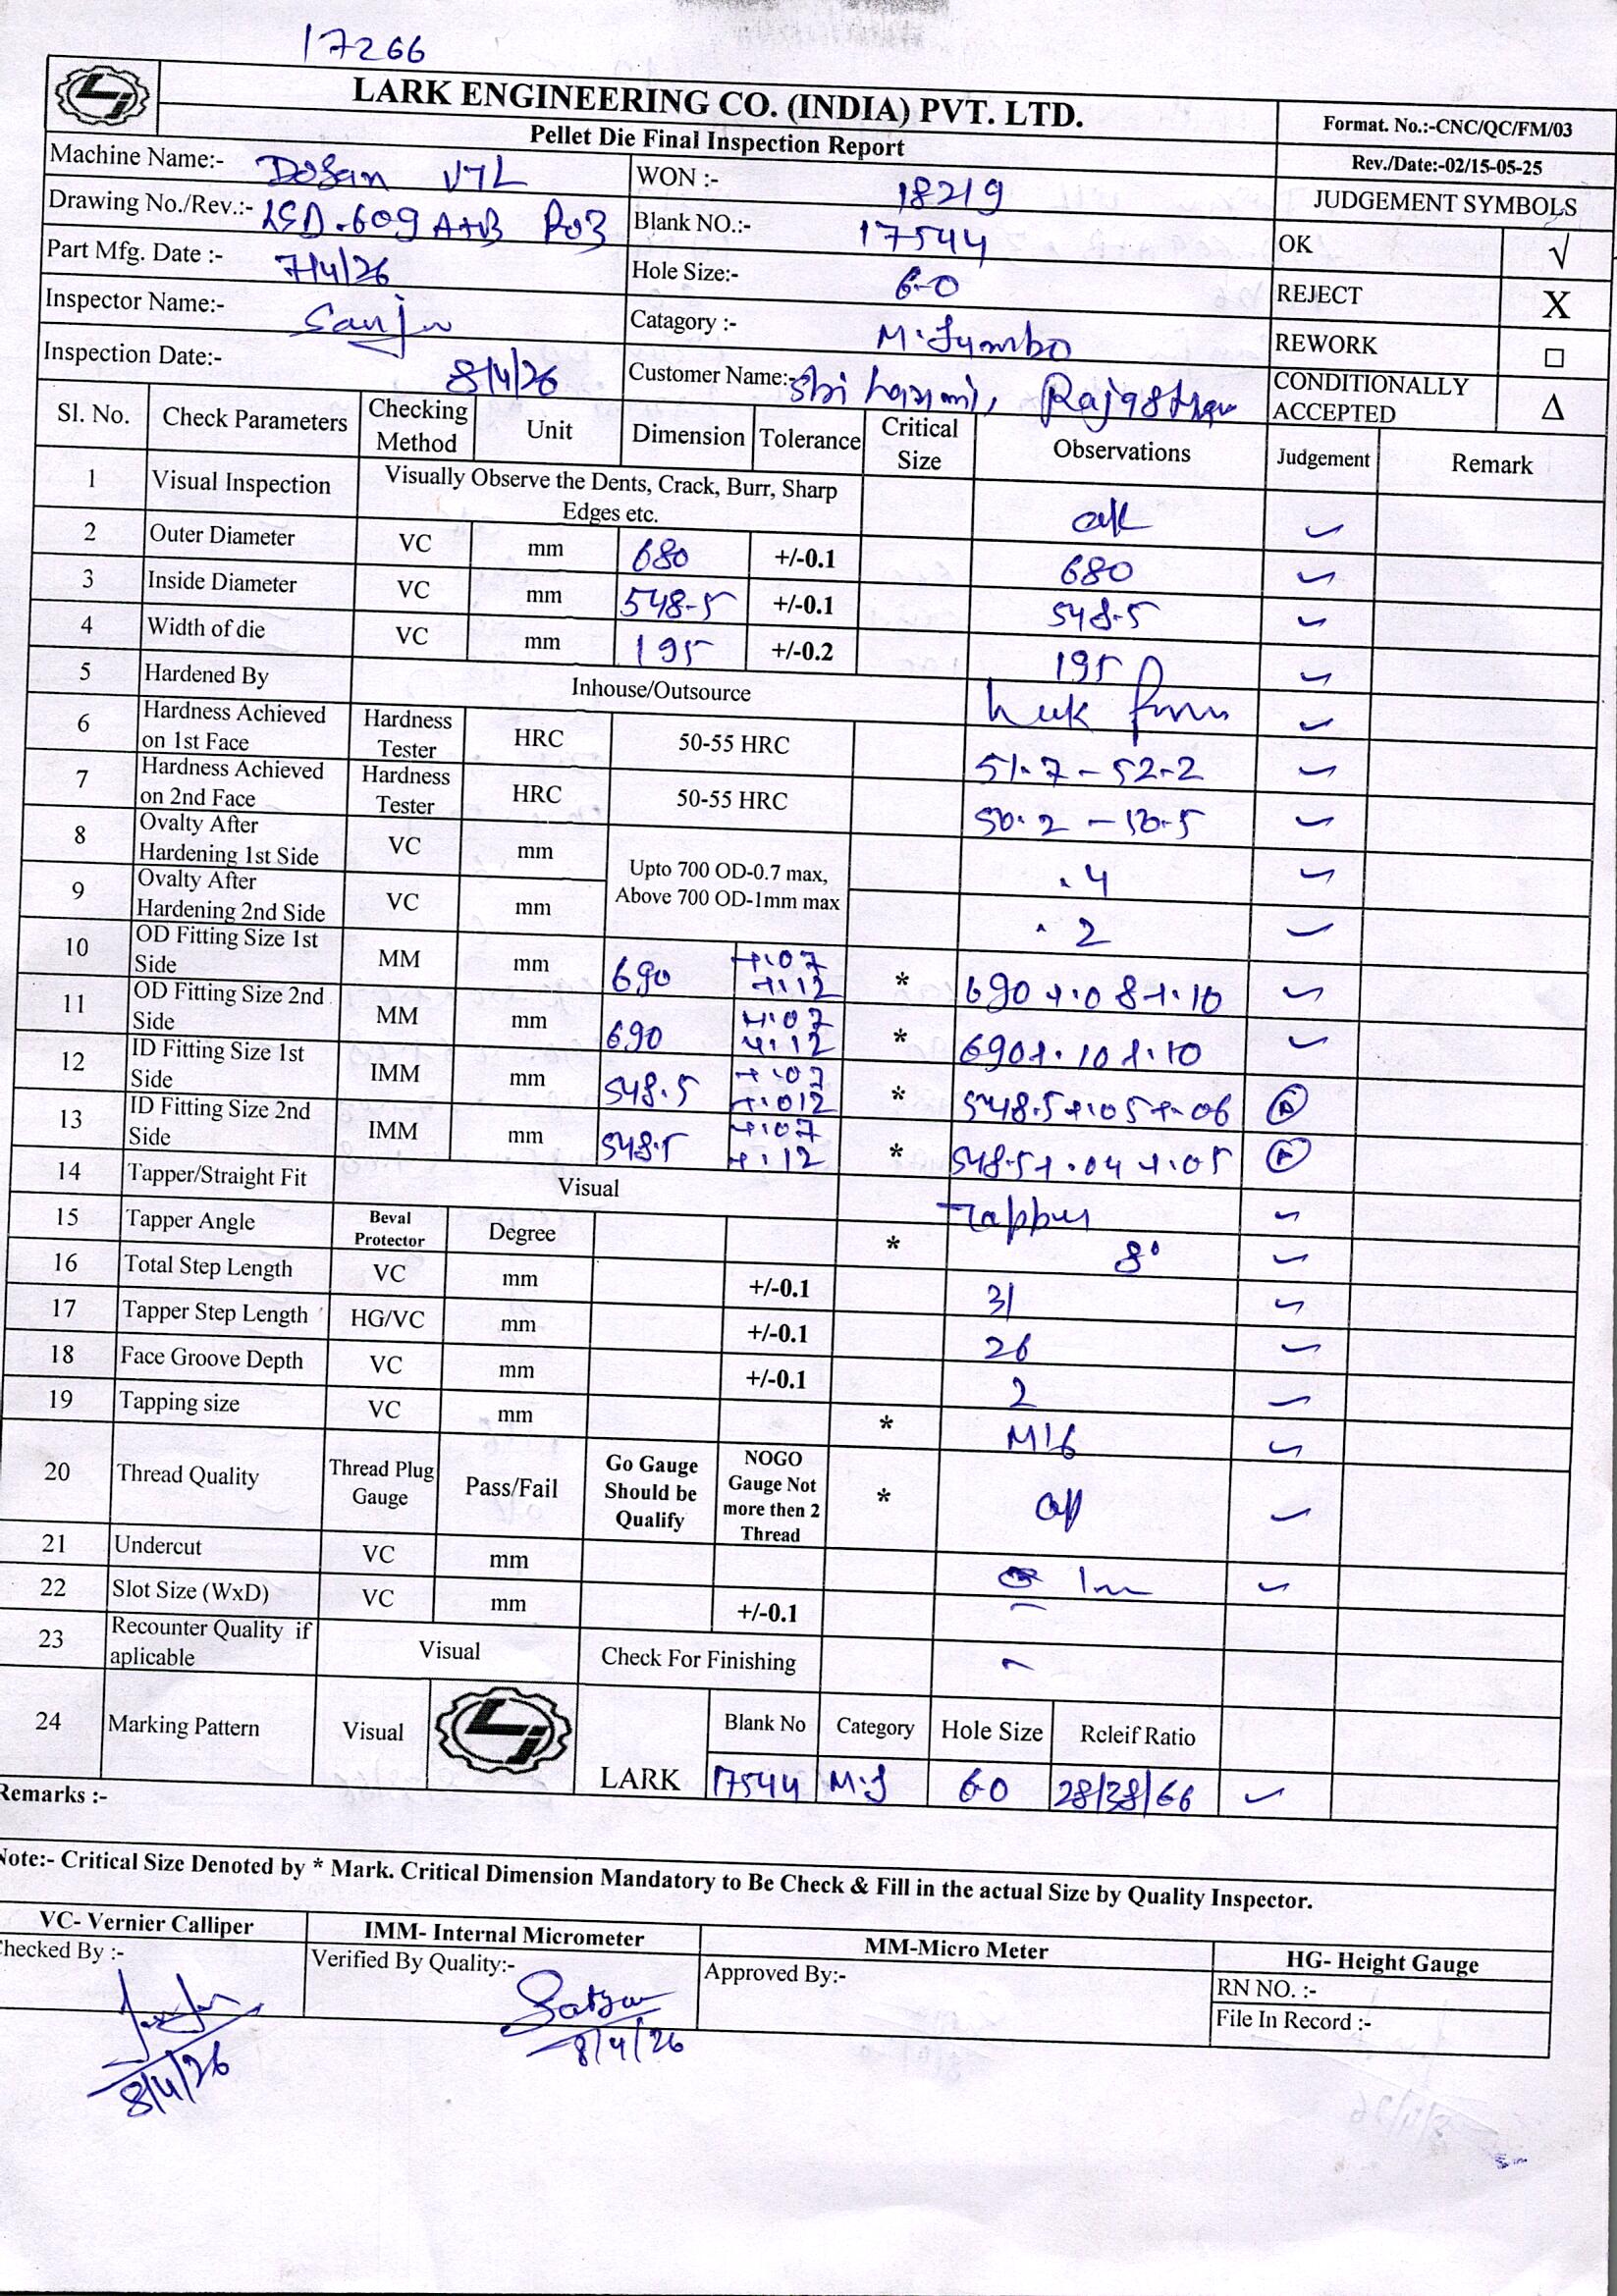 17266
LARK ENGINEERING CO. (INDIA) PVT. LTD.
Pellet Die Final Inspection Report
Format. No.:-CNC/QC/FM/03
Rev./Date:-02/15-05-25
Machine Name:- Dosan VTL
WON :- 18219
JUDGEMENT SYMBOLS
Drawing No./Rev.:- LSD-609 A+B R03
Blank NO.:- 17544
OK √
Part Mfg. Date :- 7/4/26
Hole Size:- 6.0
REJECT X
Inspector Name:- Sanju
Catagory :- M.Jumbo
REWORK □
Inspection Date:- 8/4/26
Customer Name:- Rajasthan
CONDITIONALLY ACCEPTED Δ
Sl. No. Check Parameters Checking Method Unit Dimension Tolerance Critical Size Observations Judgement Remark
1 Visual Inspection Visually Observe the Dents, Crack, Burr, Sharp Edges etc. ok ✓
2 Outer Diameter VC mm 680 +/-0.1 680 ✓
3 Inside Diameter VC mm 548.5 +/-0.1 548.5 ✓
4 Width of die VC mm 195 +/-0.2 195 ✓
5 Hardened By Inhouse/Outsource ✓
6 Hardness Achieved on 1st Face Hardness Tester HRC 50-55 HRC 51.7 - 52.2 ✓
7 Hardness Achieved on 2nd Face Hardness Tester HRC 50-55 HRC 50.2 - ✓
8 Ovalty After Hardening 1st Side VC mm Upto 700 OD-0.7 max, .4 ✓
9 Ovalty After Hardening 2nd Side VC mm Above 700 OD-1mm max .2 ✓
10 OD Fitting Size 1st Side MM mm 690 +.07 +.12 * 690 +.08 +.10 ✓
11 OD Fitting Size 2nd Side MM mm 690 +.07 +.12 * 690 +.10 +.10 ✓
12 ID Fitting Size 1st Side IMM mm 548.5 +.07 +.012 * 548.5 +.05 +.06
13 ID Fitting Size 2nd Side IMM mm 548.5 +.07 +.12 * 548.5 +.04 +.05
14 Tapper/Straight Fit Visual Tapper ✓
15 Tapper Angle Beval Protector Degree * 8° ✓
16 Total Step Length VC mm +/-0.1 31 ✓
17 Tapper Step Length HG/VC mm +/-0.1 26 ✓
18 Face Groove Depth VC mm +/-0.1 2 ✓
19 Tapping size VC mm * M16 ✓
20 Thread Quality Thread Plug Gauge Pass/Fail Go Gauge Should be Qualify NOGO Gauge Not more then 2 Thread * ✓
21 Undercut VC mm ✓
22 Slot Size (WxD) VC mm +/-0.1 -
23 Recounter Quality if aplicable Visual Check For Finishing -
24 Marking Pattern Visual LARK Blank No Category Hole Size Rcleif Ratio
17544 M.J 6.0 28/38/66 ✓
Remarks :-
Note:- Critical Size Denoted by * Mark. Critical Dimension Mandatory to Be Check & Fill in the actual Size by Quality Inspector.
VC- Vernier Calliper IMM- Internal Micrometer MM-Micro Meter HG- Height Gauge
Checked By :- Verified By Quality:- Approved By:- RN NO. :-
File In Record :-
8/4/26
8/4/26